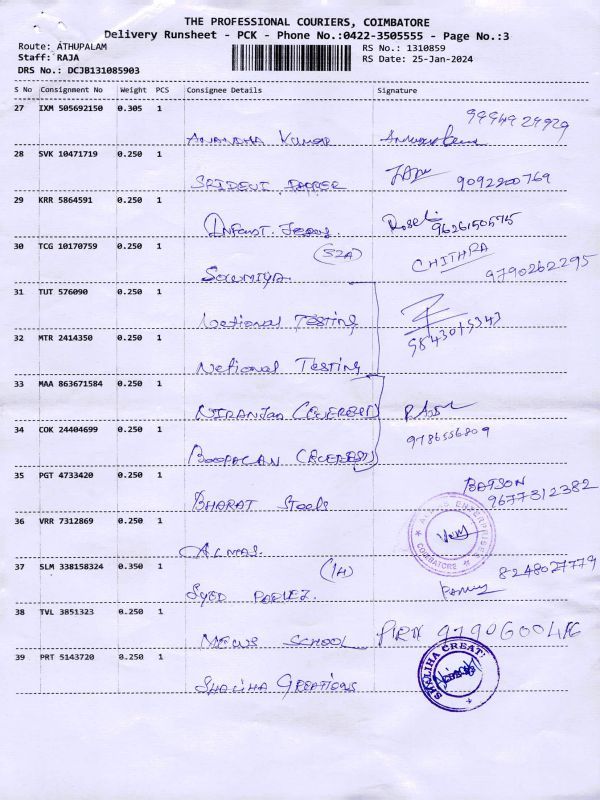 THE PROFESSIONAL COURIERS, COIMBATORE
Delivery Runsheet - PCK - Phone No.:0422-3505555 - Page No.:3
Route: ATHUPALAM RS No.: 1310859
Staff: RAJA RS Date: 25-Jan-2024
DRS No.: DCJB131085903
S No Consignment No Weight PCS Consignee Details Signature
27 IXM 505692150 0.305 1
ANANDHA KUMAR
28 SVK 10471719 0.250 1
SRIDEVI PAPPER 9092200769
29 KRR 5864591 0.250 1
INFANT 9626150575
30 TCG 10170759 0.250 1 (S2A) CHITHRA
SOWMIYA 9790262295
31 TUT 576090 0.250 1
National TESTING 9843015343
32 MTR 2414350 0.250 1
National TESTING
33 MAA 863671584 0.250 1
NIRANJAN
34 COK 24404699 0.250 1 9786556809
BOOPALAN
35 PGT 4733420 0.250 1 BATSON
BHARAT Steels 9677312382
36 VRR 7312869 0.250 1 ENTERPRISES COIMBATORE
ALMAS.
37 SLM 338158324 0.350 1 (1H) 8248027779
SYED PARVEZ.
38 TVL 3851323 0.250 1
MEWS SCHOOL
39 PRT 5143720 0.250 1 SHALIHA CREAT
SHALIHA CREATIONS